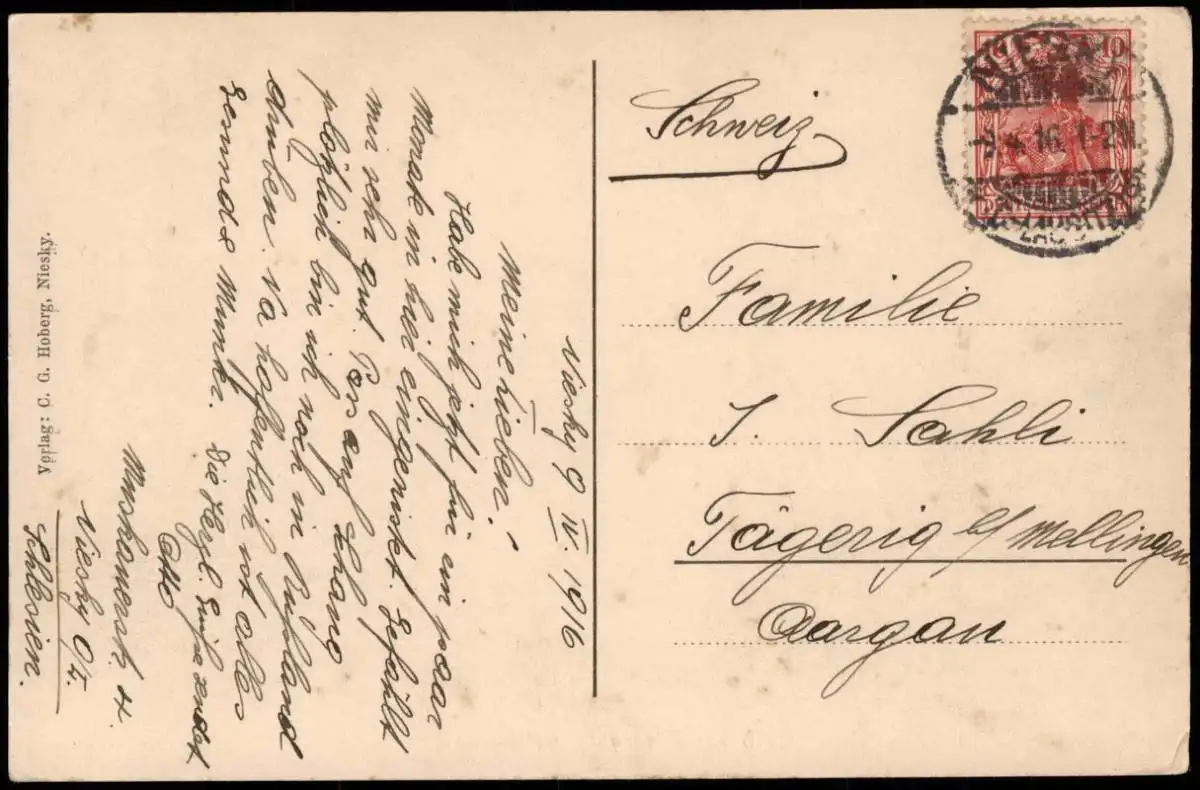 Niesky 9 IV. 1916
Meine Lieben!
Habe mich jetzt für ein paar
Monate in hier eingenistet. Gefällt
mir sehr gut. Pass auf
plötzlich bin ich noch in Rußland
drüben. Na hoffentlich ist alles
gesund & munter. Die herzl. Grüße sendet
Otto
Muskauerstr. 4.
Niesky O/L.
Schlesien.
Verlag: C. G. Hoberg, Niesky.
Schweiz
10
NIESKY
9.4.16. 1-2N.
Familie
J. Sahli
Tägerig b/ Mellingen
Aargau